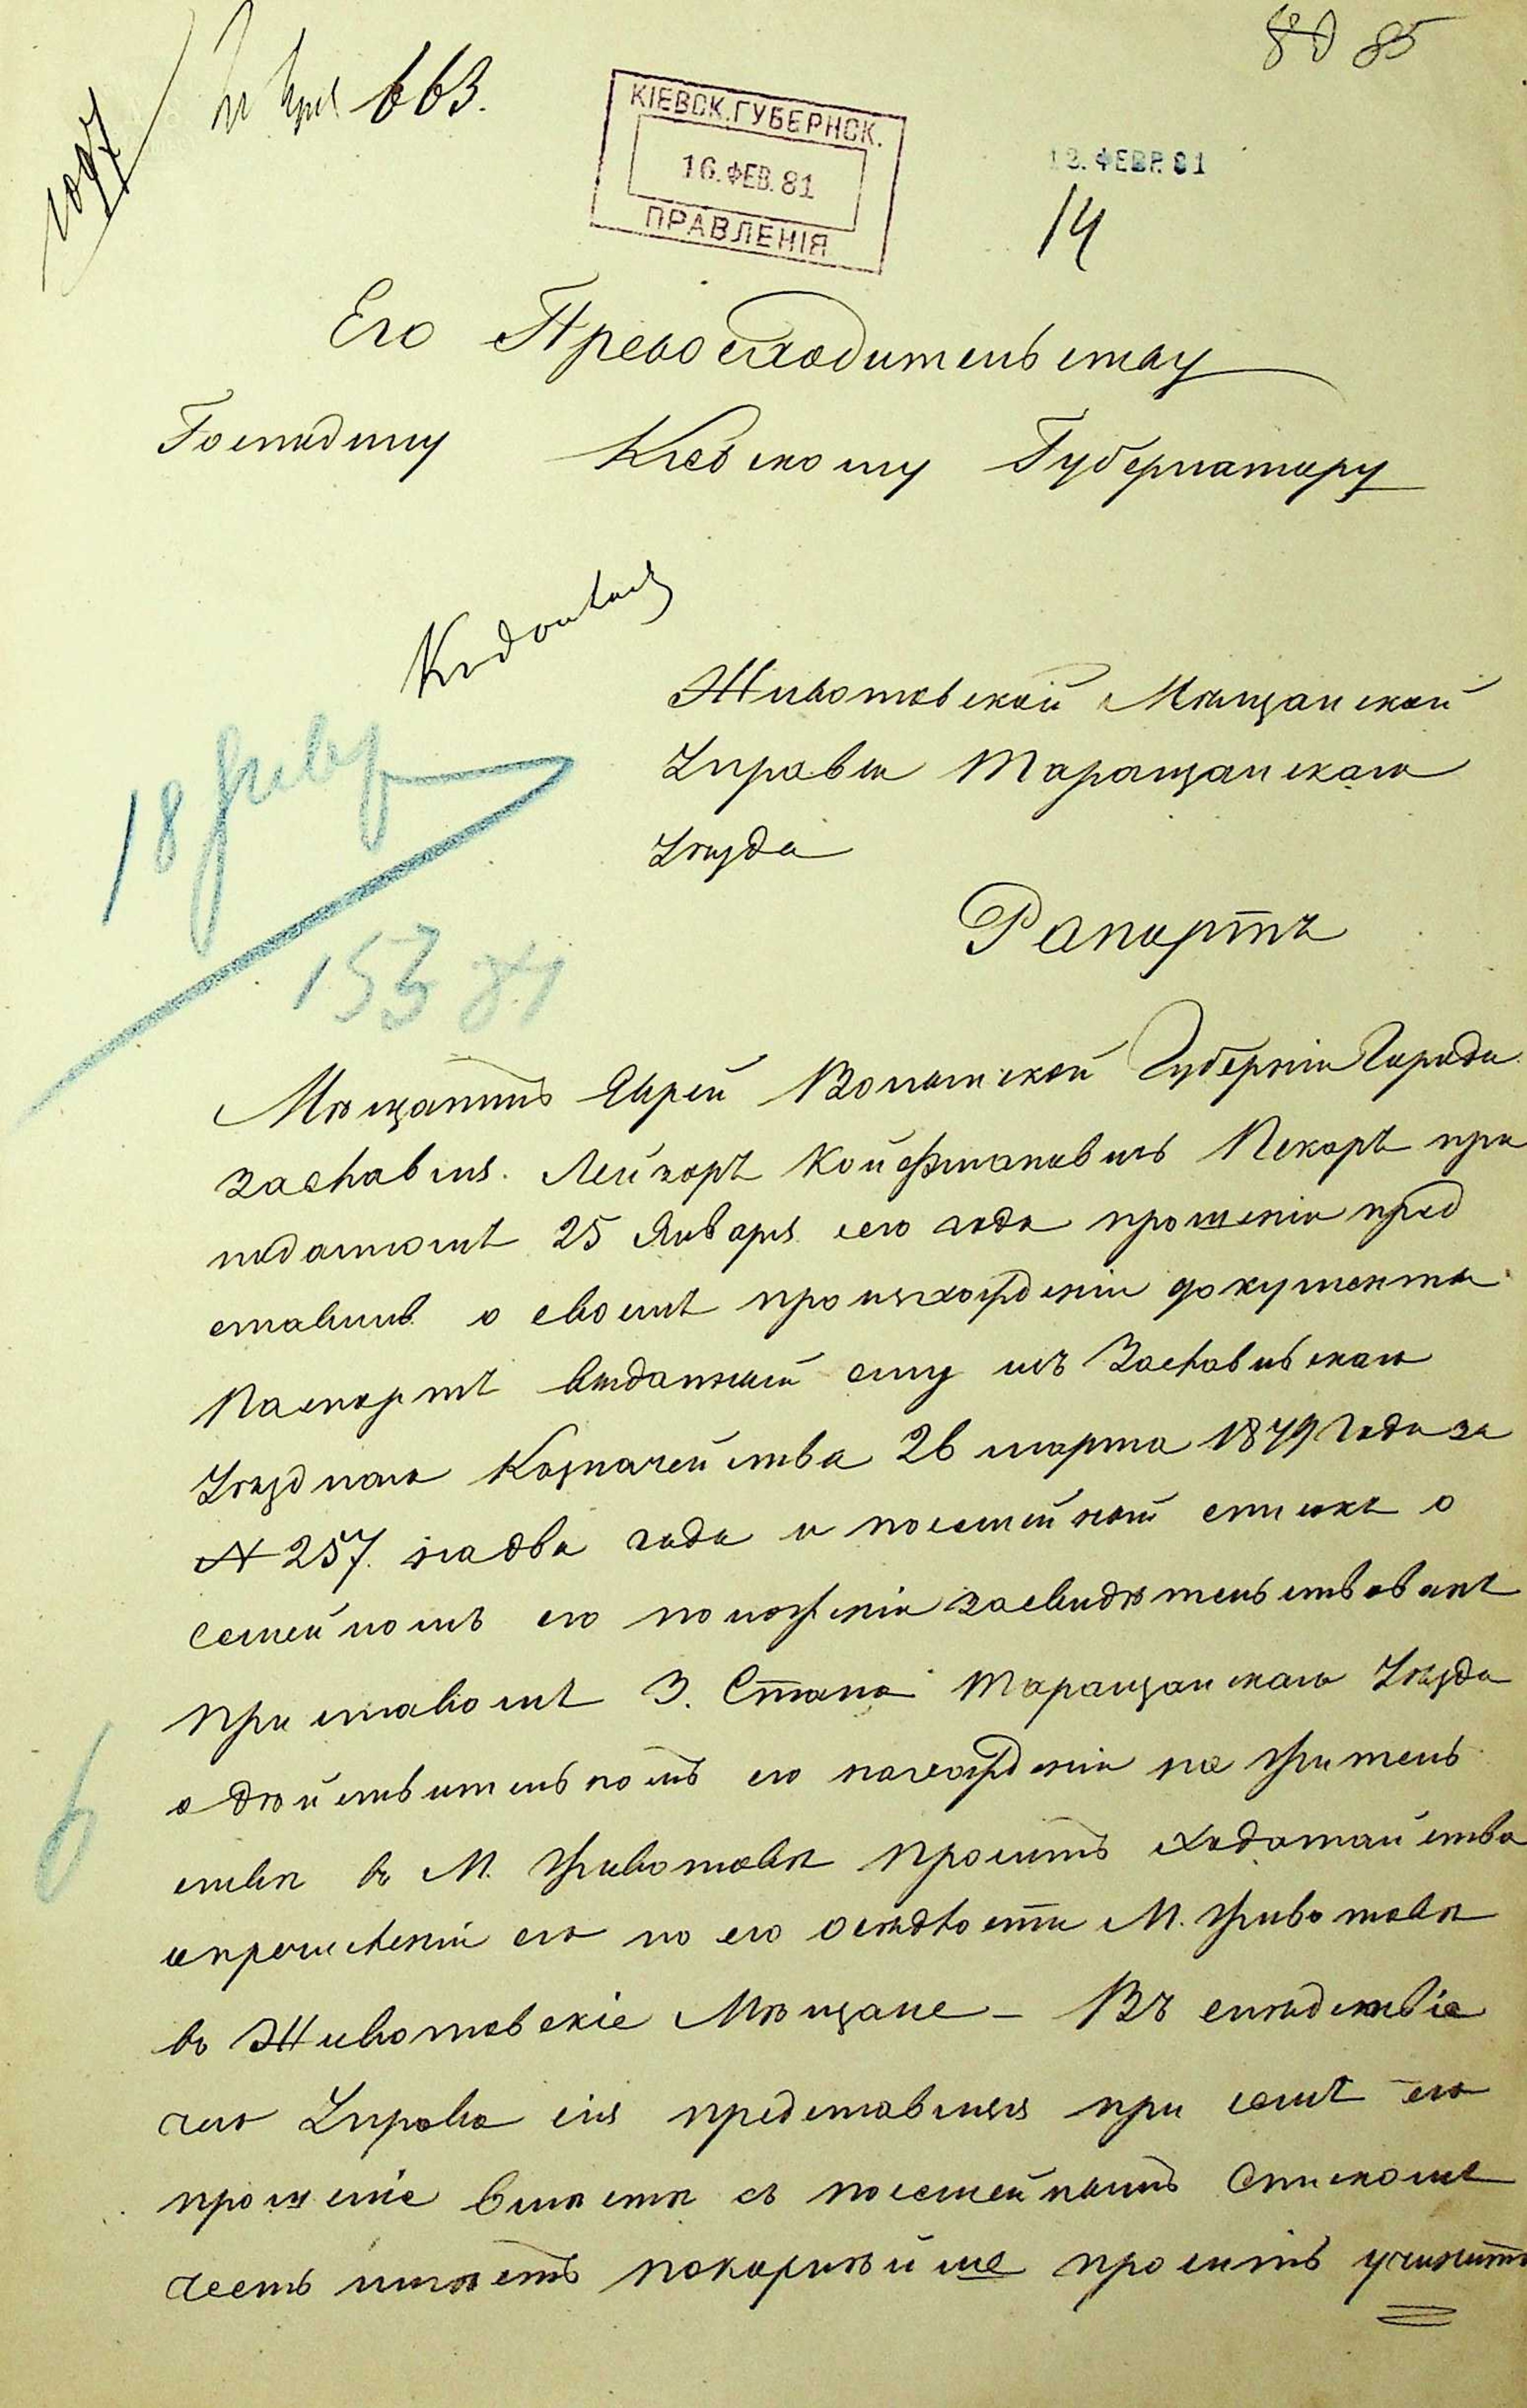 80 85
663.
КІЕВСК. ГУБЕРНСК.
16. ФЕВ. 81
ПРАВЛЕНІЯ
ФЕВР. 81
14
Его Превосходительству
Господину Кіевскому Губернатору
Животовской Мѣщанской
Управы Таращанскаго
Уѣзда
18
153 81
Рапортъ
Мѣщанинъ Еврей Волынской Губерніи Города
Заславля. Лейзоръ Койфмановичъ Пекаръ при
поданномъ 25 Января сего года прошеніи пред
ставивъ о своемъ происхожденіи документы
Паспортъ выданный ему изъ Заславльскаго
Уѣзднаго Казначейства 26 марта 1879 Года за
№ 257. на два года и посемейный списокъ о
семейномъ его положеніи засвидѣтельствованъ
приставомъ 3. Стана Таращанскаго Уѣзда
о дѣйствительномъ его нахожденіи на житель
ствѣ въ М. Животовѣ проситъ ходатайства
о причисленіи его по его осѣдлости М. Животовѣ
въ Животовскіе Мѣщане – Въ слѣдствіе
чего Управа сія представляя при семъ его
прошеніе вмѣстѣ съ посемейнымъ Спискомъ
честь имѣетъ покорнѣйше просить учинить